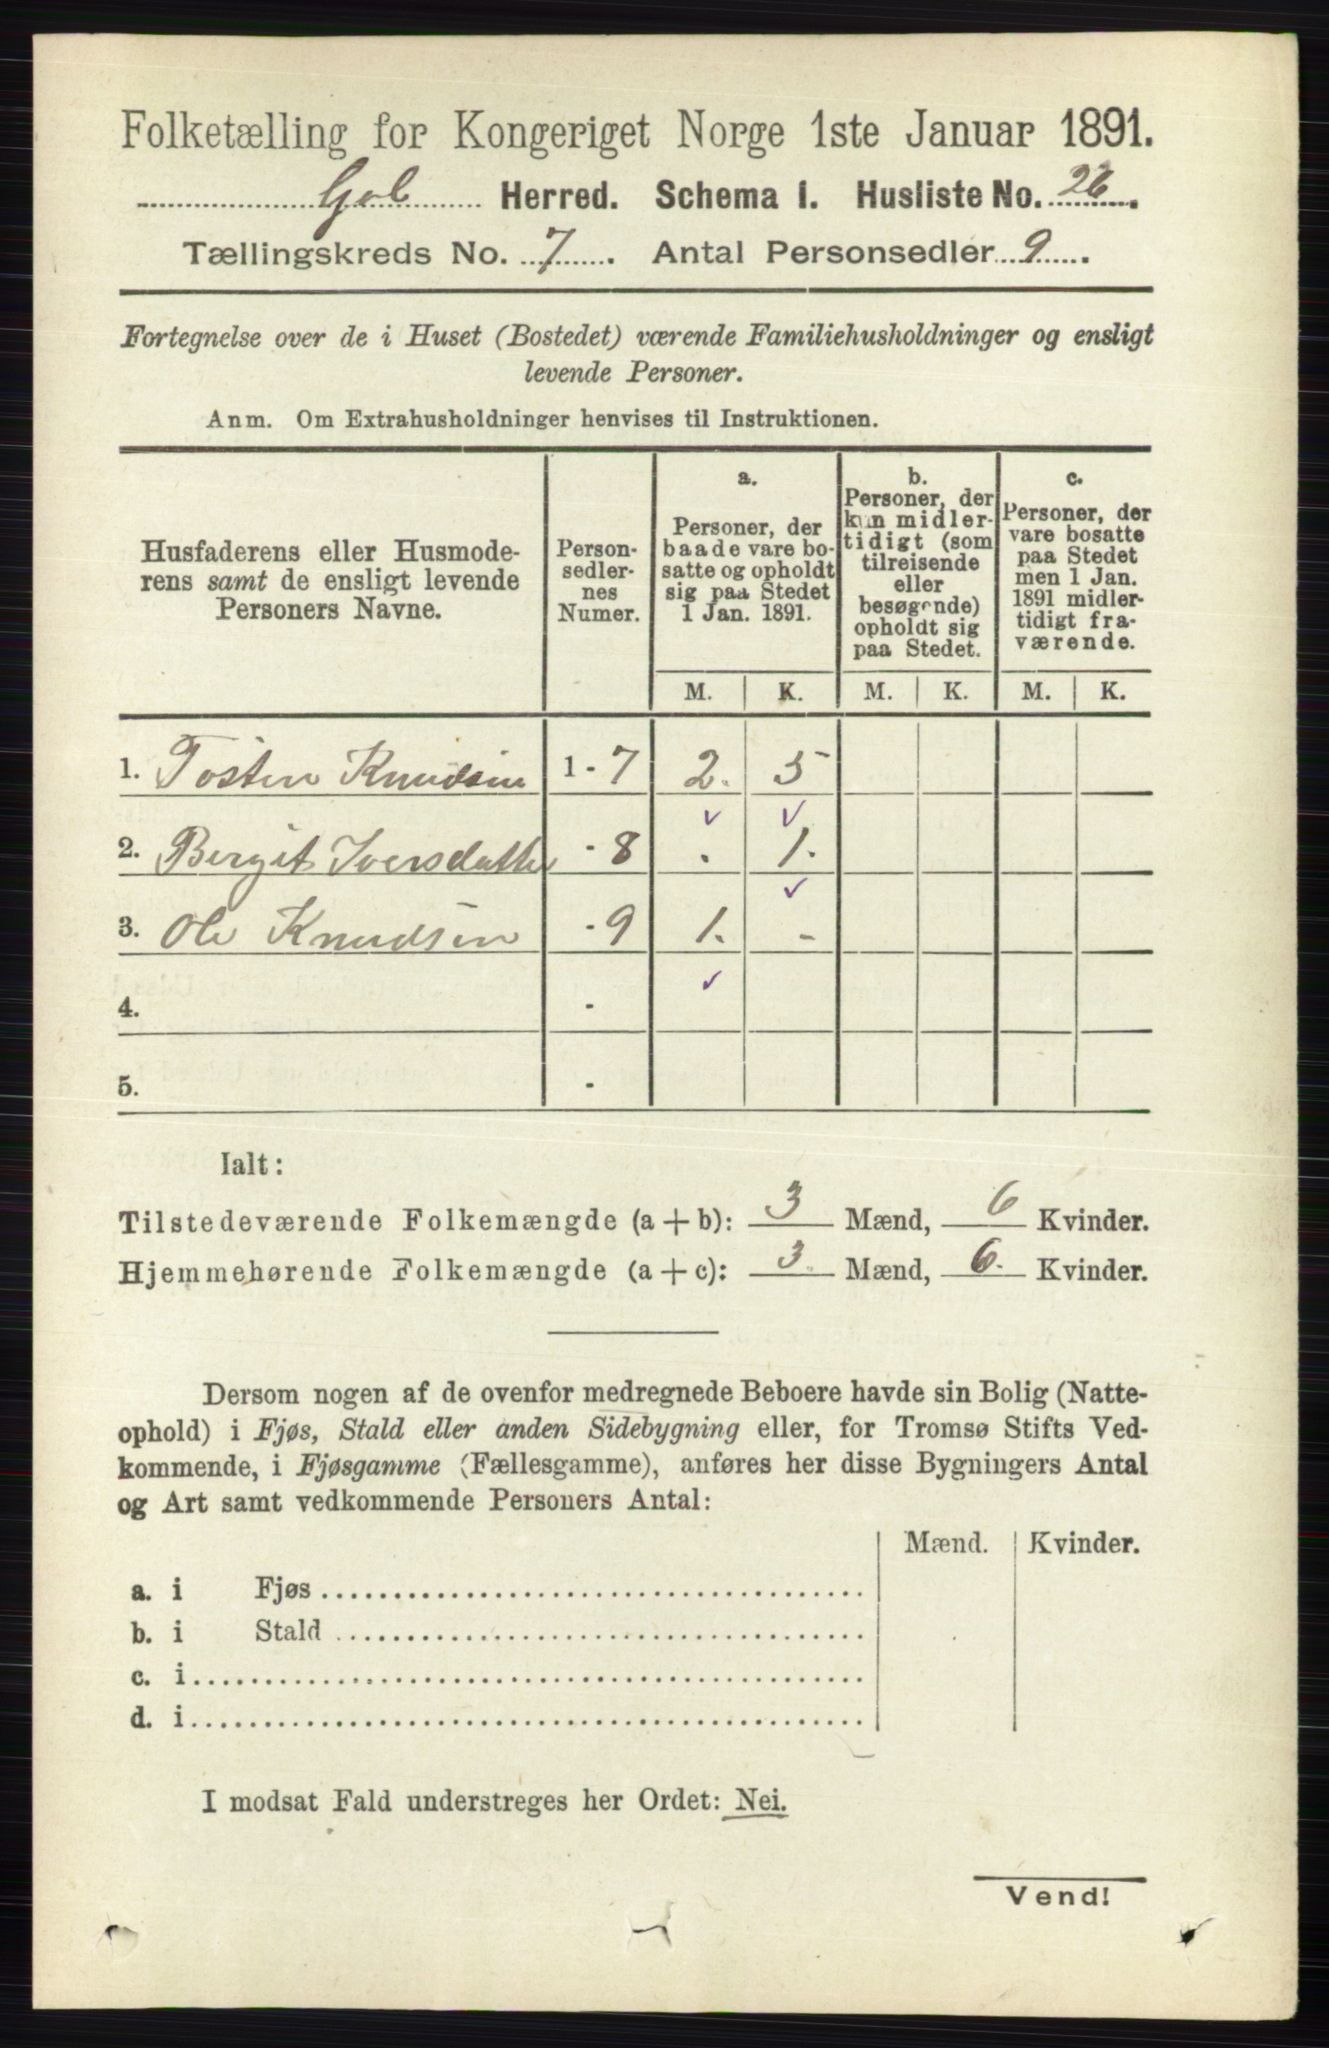 Folketælling for Kongeriget Norge 1ste Januar 1891.
Gol Herred. Schema I. Husliste No. 26.
Tællingskreds No. 7. Antal Personsedler 9.
Fortegnelse over de i Huset (Bostedet) værende Familiehusholdninger og ensligt
levende Personer.
Anm. Om Extrahusholdninger henvises til Instruktionen.
Husfaderens eller Husmode-
rens samt de ensligt levende
Personers Navne.
Person-
sedler-
nes
Numer.
a.
Personer, der
baade vare bo-
satte og opholdt
sig paa Stedet
1 Jan. 1891.
b.
Personer, der
kun midler-
tidigt (som
tilreisende
eller
besøgende)
opholdt sig
paa Stedet.
c.
Personer, der
vare bosatte
paa Stedet
men 1 Jan.
1891 midler-
tidigt fra-
værende.
M. K. M. K. M. K.
1. Tosten Knudsen 1 - 7 2. 5
2. Bergit Iversdatter - 8 . 1.
3. Ole Knudsen - 9 1. -
4. -
5. -
Ialt:
Tilstedeværende Folkemængde (a + b): 3 Mænd, 6 Kvinder.
Hjemmehørende Folkemængde (a + c): 3. Mænd, 6. Kvinder.
Dersom nogen af de ovenfor medregnede Beboere havde sin Bolig (Natte-
ophold) i Fjøs, Stald eller anden Sidebygning eller, for Tromsø Stifts Ved-
kommende, i Fjøsgamme (Fællesgamme), anføres her disse Bygningers Antal
og Art samt vedkommende Personers Antal:
Mænd. Kvinder.
a. i Fjøs
b. i Stald
c. i
d. i
I modsat Fald understreges her Ordet: Nei.
Vend!